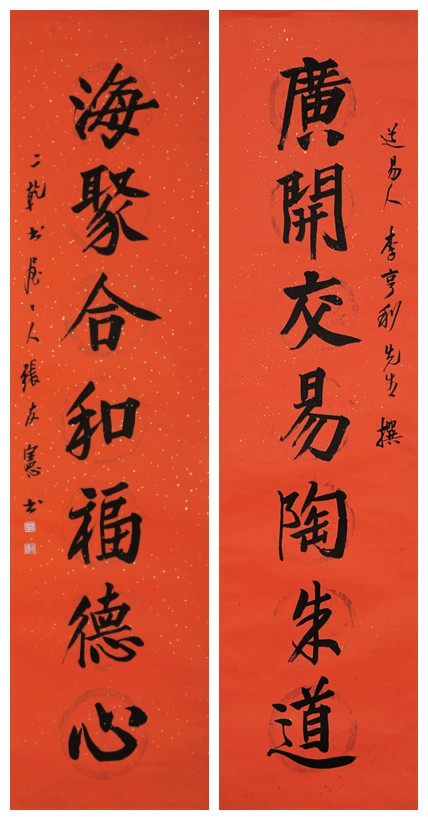 道易人李亨利先生撰
廣開交易陶朱道
海聚合和福德心
二乾書屋主人張友憲書